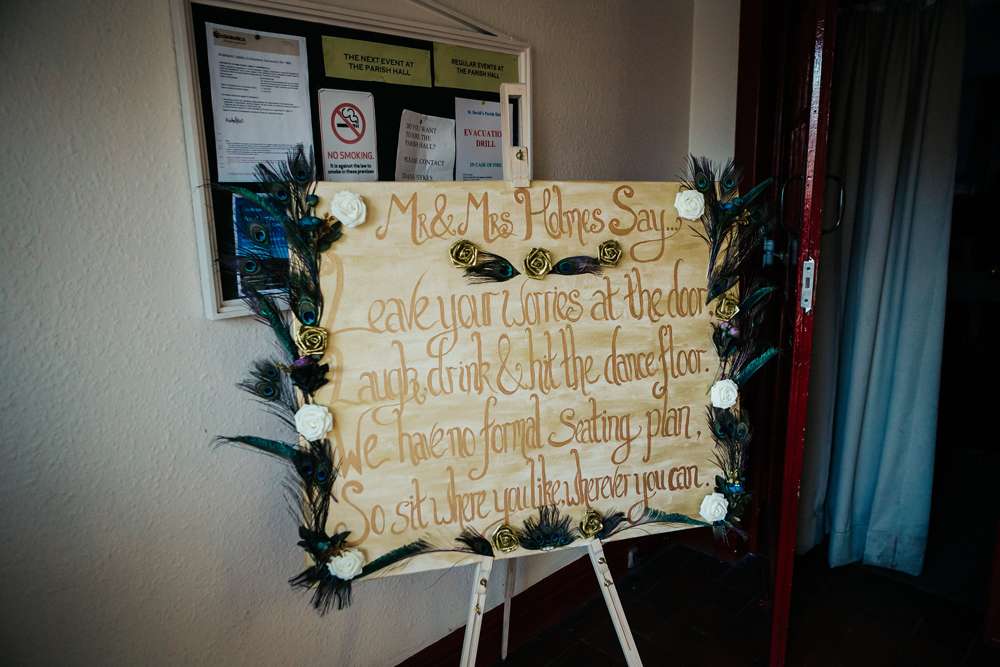 THE NEXT EVENT AT
THE PARISH HALL
REGULAR EVENTS AT
THE PARISH HALL
NO SMOKING.
It is against the law to
smoke in these premises
DO YOU WANT
TO HIRE THE
PARISH HALL?
PLEASE CONTACT
St. David's Parish
EVACUATION
DRILL
IN CASE OF FIRE
Mr & Mrs Holmes Say...
Leave your worries at the door.
Laugh, drink & hit the dance floor.
We have no formal seating plan,
So sit where you like, wherever you can.